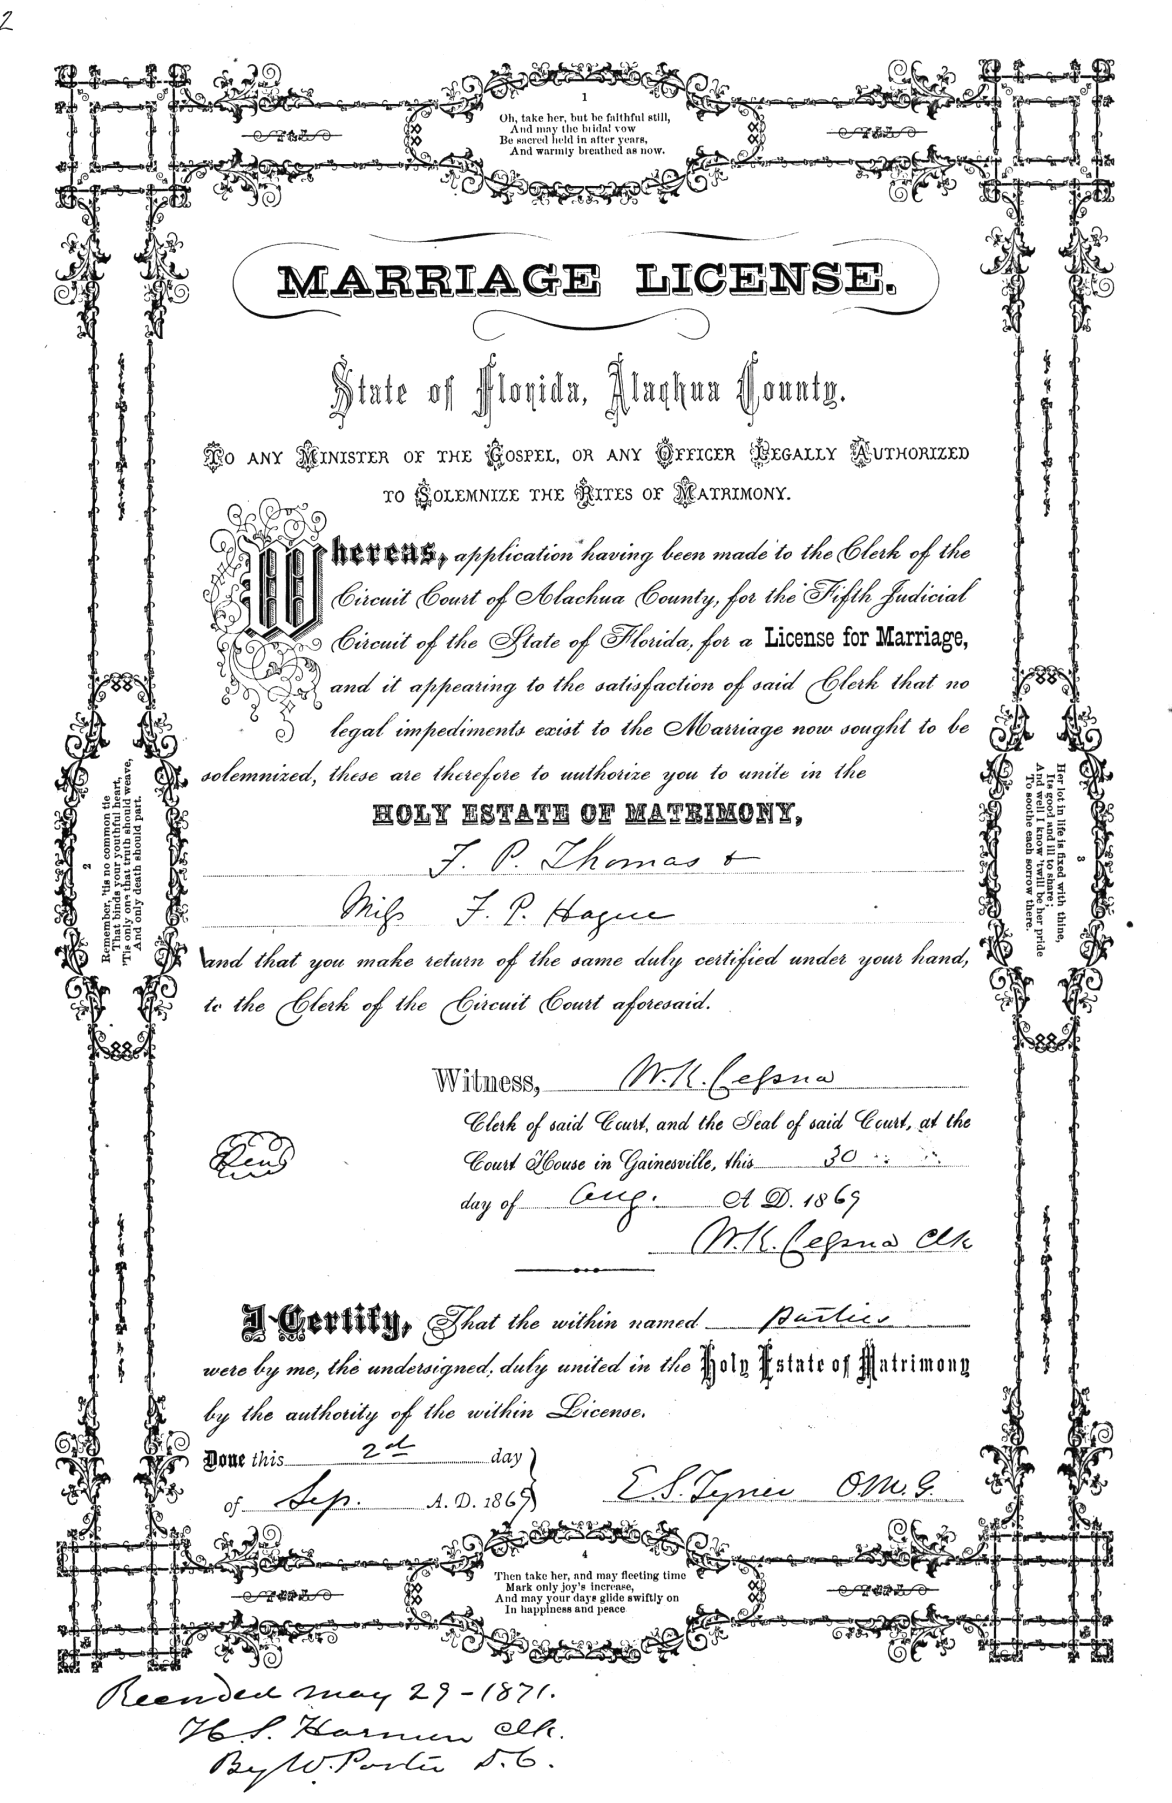 2
1
Oh, take her, but be faithful still,
And may the bridal vow
Be sacred held in after years,
And warmly breathed as now.
MARRIAGE LICENSE.
State of Florida, Alachua County.
To any Minister of the Gospel, or any Officer Legally Authorized
to Solemnize the Rites of Matrimony.
Whereas, application having been made to the Clerk of the
Circuit Court of Alachua County, for the Fifth Judicial
Circuit of the State of Florida, for a License for Marriage,
and it appearing to the satisfaction of said Clerk that no
legal impediments exist to the Marriage now sought to be
solemnized, these are therefore to authorize you to unite in the
HOLY ESTATE OF MATRIMONY,
F. P. Thomas &
Miss F. P. Hague
and that you make return of the same duly certified under your hand,
to the Clerk of the Circuit Court aforesaid.
2
Remember, 'tis no common tie
That binds your youthful heart,
'Tis only one that truth should weave,
And only death should part.
3
Her lot in life is fixed with thine,
Its good and ill to share;
And well I know 'twill be her pride
To soothe each sorrow there.
Witness, W. K. Cessna
Clerk of said Court, and the Seal of said Court, at the
Court House in Gainesville, this 30
day of Aug. A. D. 1869
W. K. Cessna Clk
I Certify, That the within named parties
were by me, the undersigned, duly united in the Holy Estate of Matrimony
by the authority of the within License.
Done this 2d day
of Sep. A. D. 1869
E. S. Tyner O. M. G.
4
Then take her, and may fleeting time
Mark only joy's increase,
And may your days glide swiftly on
In happiness and peace
Recorded May 29-1871.
H. S. Harmon Clk.
By W. Porter D. C.